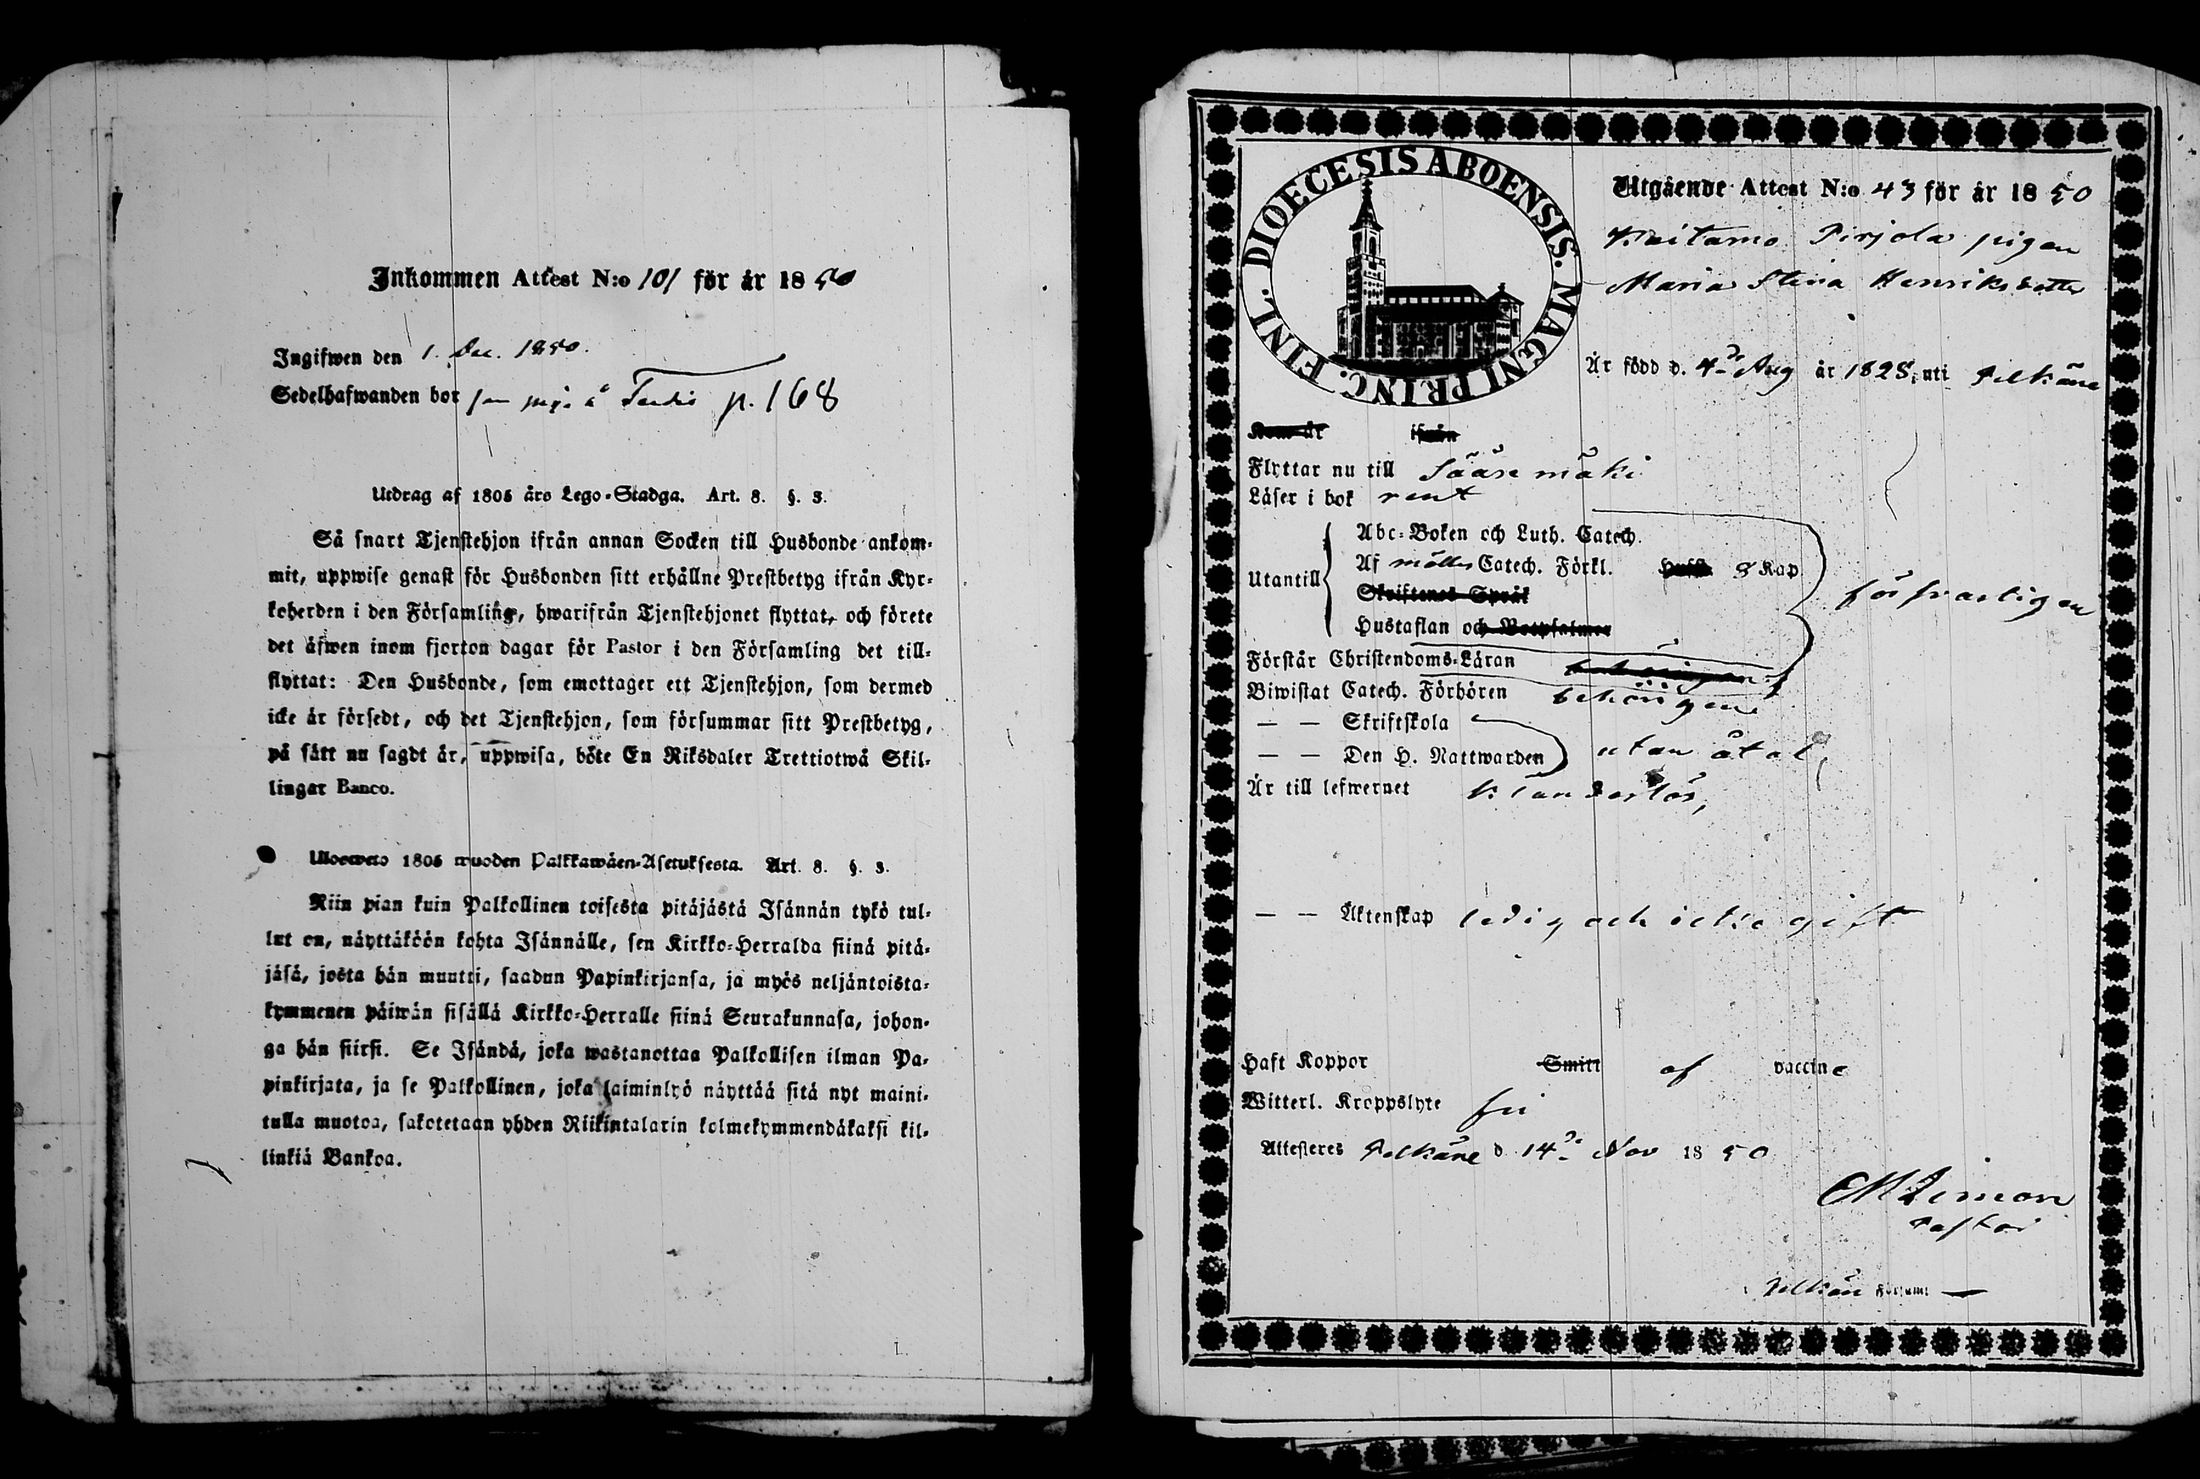 Inkommen Attest N:o 101 för år 1850
Ingifwen den 1. Dec. 1850.
Sedelhafwanden bor p. 168
Utdrag af 1805 års Lego-Stadga. Art. 8. §. 3.
Så snart Tjenstehjon ifrån annan Socken till Husbonde ankom-
mit, uppwise genast för Husbonden sitt erhållne Prestbetyg ifrån Kyr-
koherden i den Församling, hwarifrån Tjenstehjonet flyttat, och förete
det äfwen inom fjorton dagar för Pastor i den Församling det till-
flyttat: Den Husbonde, som emottager ett Tjenstehjon, som dermed
icke är försedt, och det Tjenstehjon, som försummar sitt Prestbetyg,
på sätt nu sagdt är, uppwisa, böte En Riksdaler Trettiotwå Skil-
lingar Banco.
Ulosweto 1805 wuoden Palkkawäen-Asetuksesta. Art. 8. §. 3.
Niin pian kuin Palkollinen toisesta pitäjästä Isännän tykö tul-
lut on, näyttäköön kohta Isännälle, sen Kirkko-Herralda siinä pitä-
jäsä, josta hän muutti, saadun Papinkirjansa, ja myös neljäntoista-
kymmenen päiwän sisällä Kirkko-Herralle siinä Seurakunnasa, johon-
ga hän siirsi. Se Isändä, joka wastanottaa Palkollisen ilman Pa-
pinkirjata, ja se Palkollinen, joka laiminlyö näyttää sitä nyt maini-
tulla muotoa, sakotetaan yhden Riikintalarin kolmekymmendäkaksi kil-
linkiä Bankoa.
DIOECESIS ABOENSIS. MAGNI PRINC. FINL.
Utgående Attest N:o 43 för år 1850
Waitamo Pirjola pigan
Maria Stina Henriksdotter
Är född d. 4de Aug år 1828, uti Pelkäne
Kom år ifrån
Flyttar nu till Sääxmäki
Läser i bok rent
Abc-Boken och Luth. Catech.
Utantill Af möllers Catech. Förkl. 8 Kap
Skriftenes Språk
Hustaflan och Botpsalmer
försvarligen
Förstår Christendoms-Läran behörigen
Biwistat Catech. Förhören behörigen
— — Skriftskola
— — Den H. Nattwarden utan åtal
Är till lefwernet klanderlös,
— — Äktenskap ledig och icke gift
Haft Koppor Smitt af vaccine
Witterl. Kroppslyte fri
Attesteres Pelkäne d 14de Nov 1850
Pastor
Pelkäne Församl —